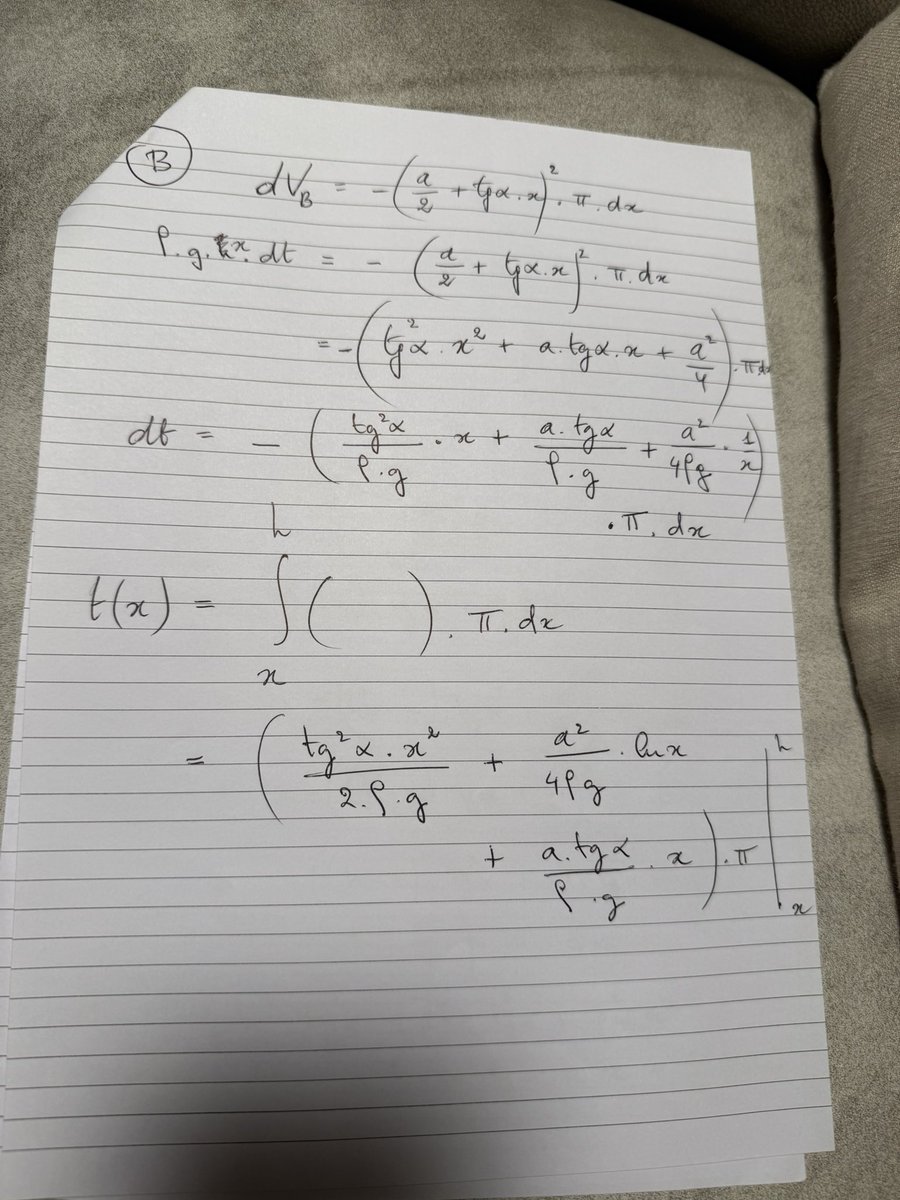 B
dV_B = -(a/2 + tgα.x)². π. dx
ρ.g.x.dt = - (a/2 + tgα.x)². π. dx
= -(tg²α. x² + a.tgα.x + a²/4). π.dx
dt = - (tg²α/ρ.g . x + a.tgα/ρ.g + a²/4ρg . 1/x)
. π. dx
t(x) = ∫ₓʰ ( ). π. dx
= (tg²α.x²/2.ρ.g + a²/4ρg . lnx
+ a.tgα/ρ.g . x). π |ₓʰ